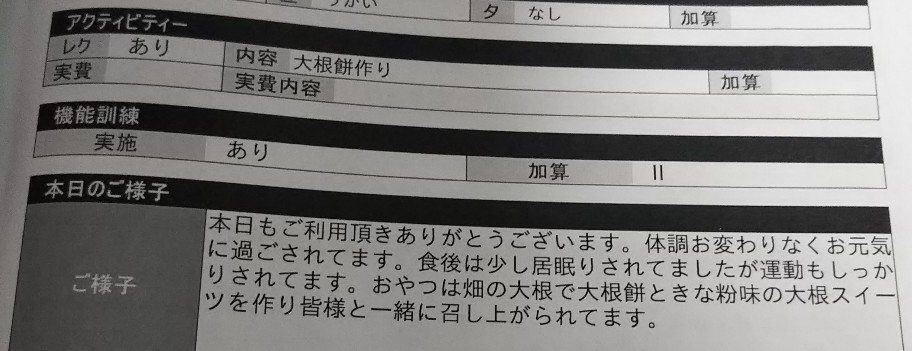 うがい 夕 なし 加算
アクティビティー
レク あり 内容 大根餅作り
実費 実費内容 加算
機能訓練
実施 あり 加算 II
本日のご様子
ご様子
本日もご利用頂きありがとうございます。体調お変わりなくお元気
に過ごされてます。食後は少し居眠りされてましたが運動もしっか
りされてます。おやつは畑の大根で大根餅ときな粉味の大根スイー
ツを作り皆様と一緒に召し上がられてます。